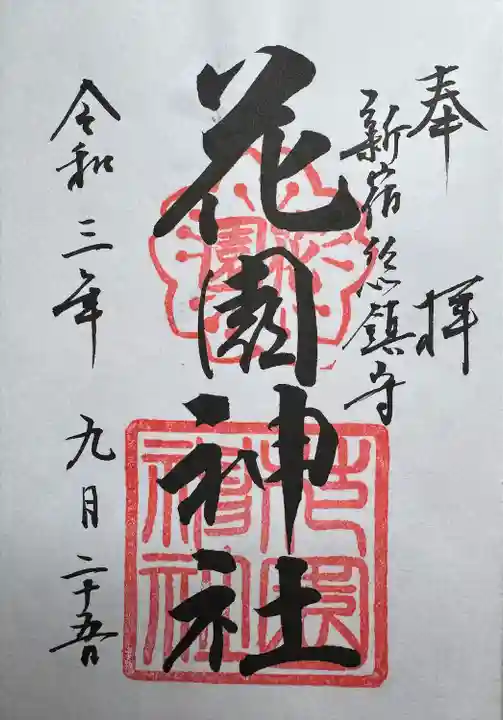 奉拝
新宿総鎮守
花園神社
令和三年九月二十五日
花園神社